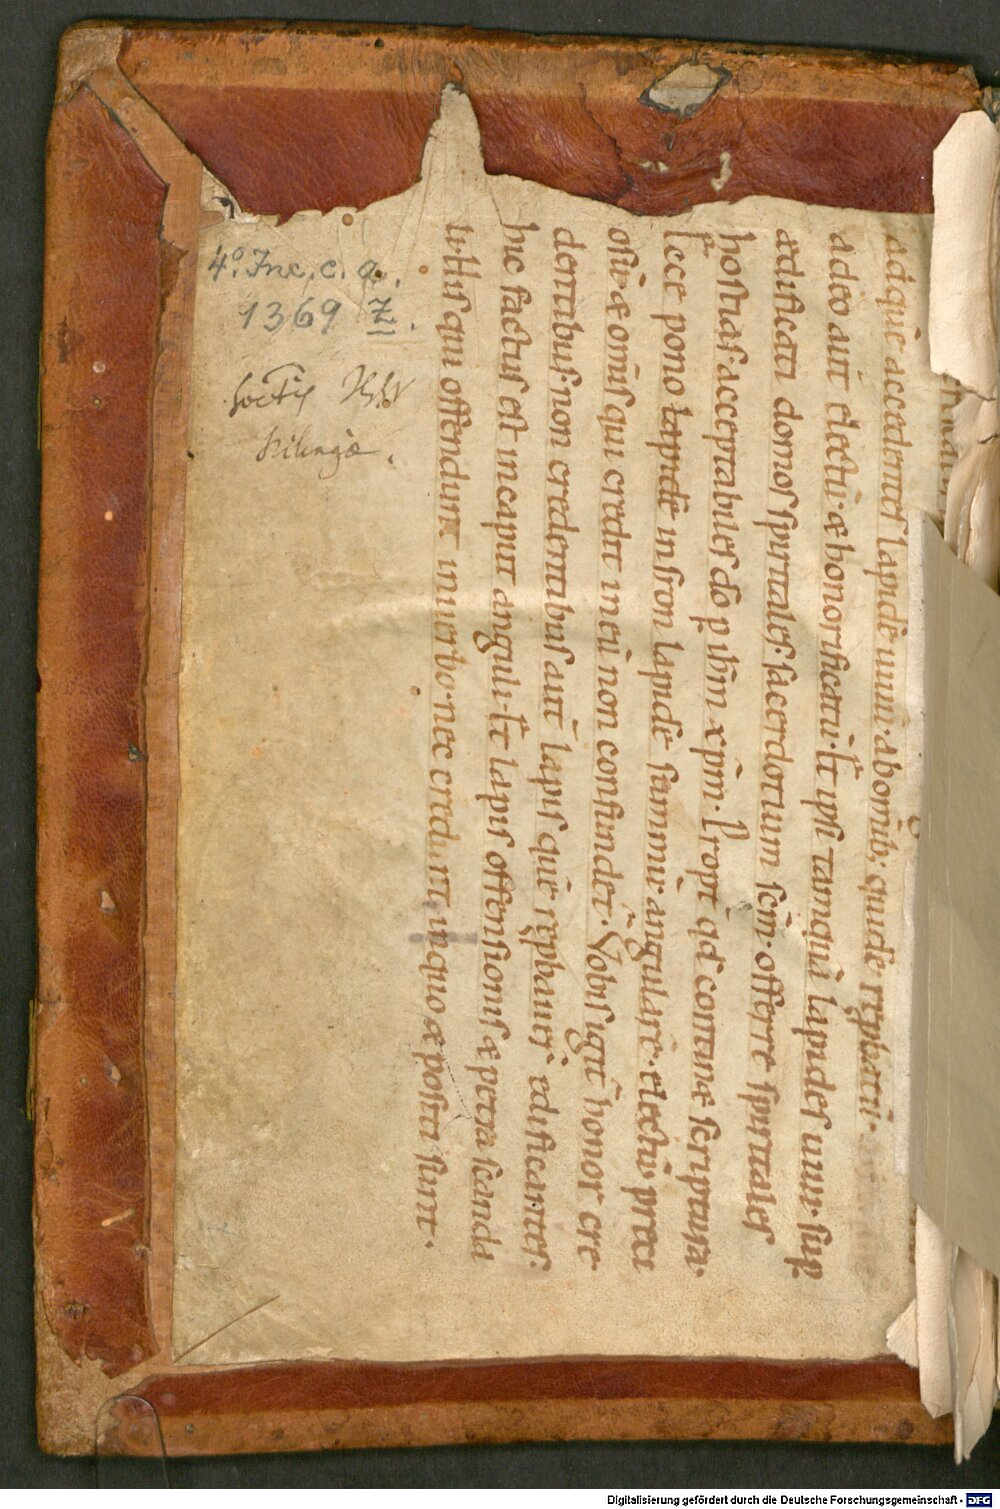 4º. Inc. c. a.
1369 Z.
Soctis Jesu
Dilingæ.
ad quē accedentes lapidē uiuū· ab omīb; quidē rep̱batū·
a deo aut̄ electū· & honorificatū· & ipsi tamquā lapides uiui· sup̱
ædificati domos spiritales· sacerdotium sc̄m· offerre spiritales
hostias· acceptabiles dō p̱ ih̄m xp̄m· Propt̄ qd̄ continet scriptura·
Ecce pono lapidē in sion lapidē summū angularē· electū· preci
osū· & om̄is qui credit in eū non confundet̄· Vobis igit̄ honor cre
dentibus· non credentibus aut̄ lapis quē rep̱bauer̄ edificantes·
hic factus est in caput anguli· & lapis offensionis & petra scanda
li· his qui offendunt in uerbo· nec credunt in quo & positi sunt·
Digitalisierung gefördert durch die Deutsche Forschungsgemeinschaft - DFG